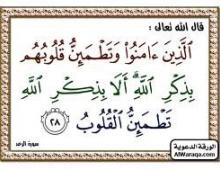 قال الله تعالى :
الَّذِينَ ءَامَنُوا۟ وَتَطْمَئِنُّ قُلُوبُهُم
بِذِكْرِ اللَّهِ ۗ أَلَا بِذِكْرِ اللَّهِ
تَطْمَئِنُّ الْقُلُوبُ ٢٨
سورة الرعد
الورقة الدعوية
AlWaraqa.com